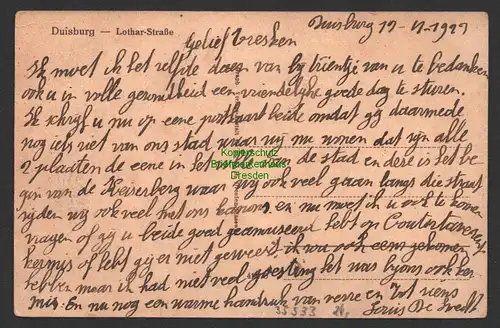 Duisburg — Lothar-Straße
Duisburg 19-11-1923
Gelief Cresken
Ik moet ik het zelfde doen van by brientje van u te bedanken
ook u in volle gezondheid een vriendelyke goede dag te sturen.
Ik schryf u nu op eene postkaart beide omdat gy daarmede
nog iets ziet van ons stad waar wy nu wonen dat zyn alle
2 plaatsen de eene in het van de stad en deze is het be
gin van de Keiserberg waar wy ook veel gaan langs die straat
ryden wy ook veel met ons kanons, en nu moet ik u ook te
vragen of gy u beide goed geamuseerd hebt op
kermis of hebt gy er niet geweest. ik zou ook eens gekomen
hebben maar ik had niet veel goesting het was byons ook ker
mis. En nu nog een warme handruk van verre en tot ziens
De Smedt
Konvolutschutz
Briefmarkenhaus
Dresden
35333